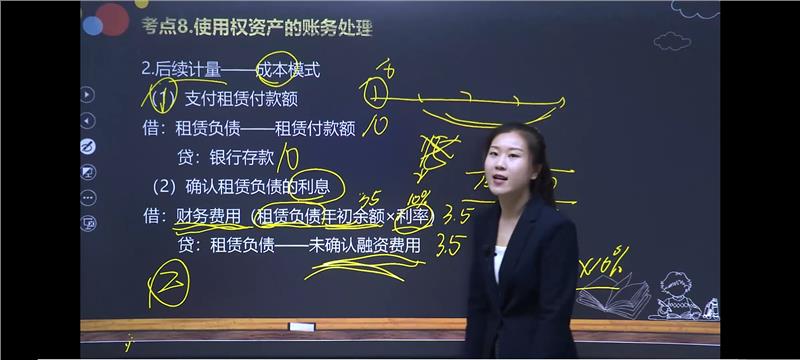 考点8.使用权资产的账务处理
2.后续计量——成本模式
（1）支付租赁付款额
借：租赁负债——租赁付款额 10
贷：银行存款 10
（2）确认租赁负债的利息
35 10%
借：财务费用（租赁负债年初余额×利率）3.5
贷：租赁负债——未确认融资费用 3.5
×10%
2